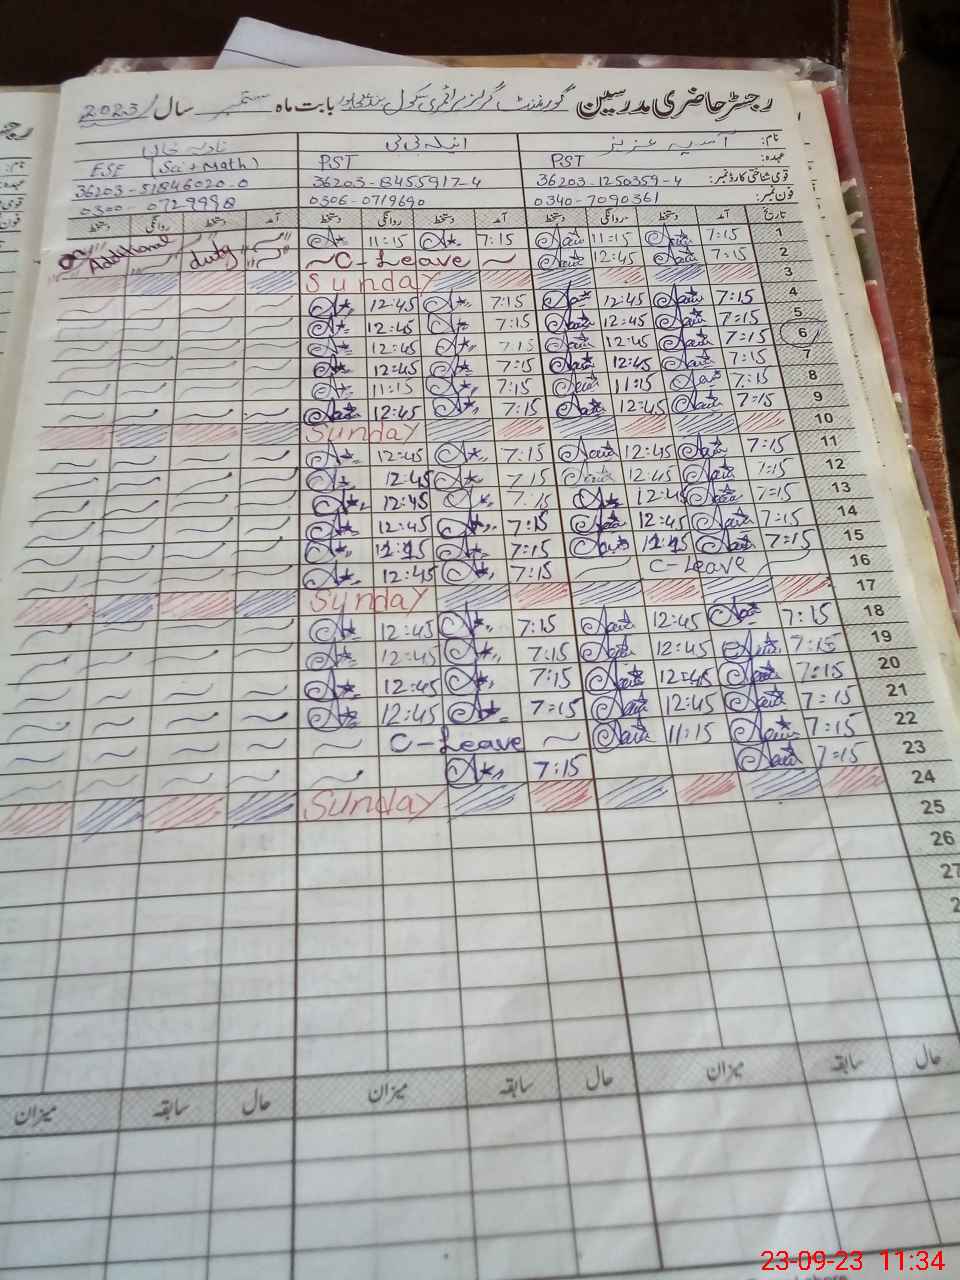 رجسٹر حاضری مدرسین گورنمنٹ گرلز پرائمری سکول بابت ماہ ستمبر سال 2023
نام: آسیہ عزیز انیلہ بی بی نادیہ خان
عہدہ: PST PST ESE (Sci + Math)
قومی شناختی کارڈ نمبر: 36203-1250359-4 36203-8455917-4 36203-51846020-0
فون نمبر: 0340-7090361 0306-0719690
تاریخ آمد دستخط روانگی دستخط آمد دستخط روانگی دستخط آمد دستخط روانگی دستخط
1 7:15 11:15 7:15 11:15 on Additional duty
2 7:15 12:45 C-Leave
3 Sunday
4 7:15 12:45 7:15 12:45
5 7:15 12:45 7:15 12:45
6 7:15 12:45 7:15 12:45
7 7:15 12:45 7:15 12:45
8 7:15 11:15 7:15 11:15
9 7:15 12:45 7:15 12:45
10 Sunday
11 7:15 12:45 7:15 12:45
12 7:15 12:45 7:15 12:45
13 7:15 12:45 7:15 12:45
14 7:15 12:45 7:15 12:45
15 7:15 7:15
16 C-Leave 7:15 12:45
17 Sunday
18 7:15 12:45 7:15 12:45
19 7:15 12:45 7:15 12:45
20 7:15 12:45 7:15 12:45
21 7:15 12:45 7:15 12:45
22 7:15 11:15 C-Leave
23 7:15 7:15
24 Sunday
25
26
27
2
حال سابقہ میزان حال سابقہ میزان حال سابقہ میزان
23-09-23 11:34